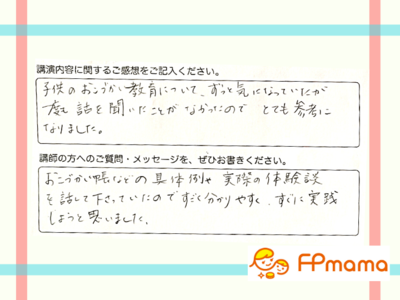 講演内容に関するご感想をご記入ください。
子供のおこづかい教育について、ずっと気になっていたが
度も 話を聞いたことがなかったので とても参考に
なりました。
講師の方へのご質問・メッセージを、ぜひお書きください。
おこづかい帳などの具体例や実際の体験談
を話して下さっていたのですごく分かりやすく、すぐに実践
しようと思いました。
FPmama